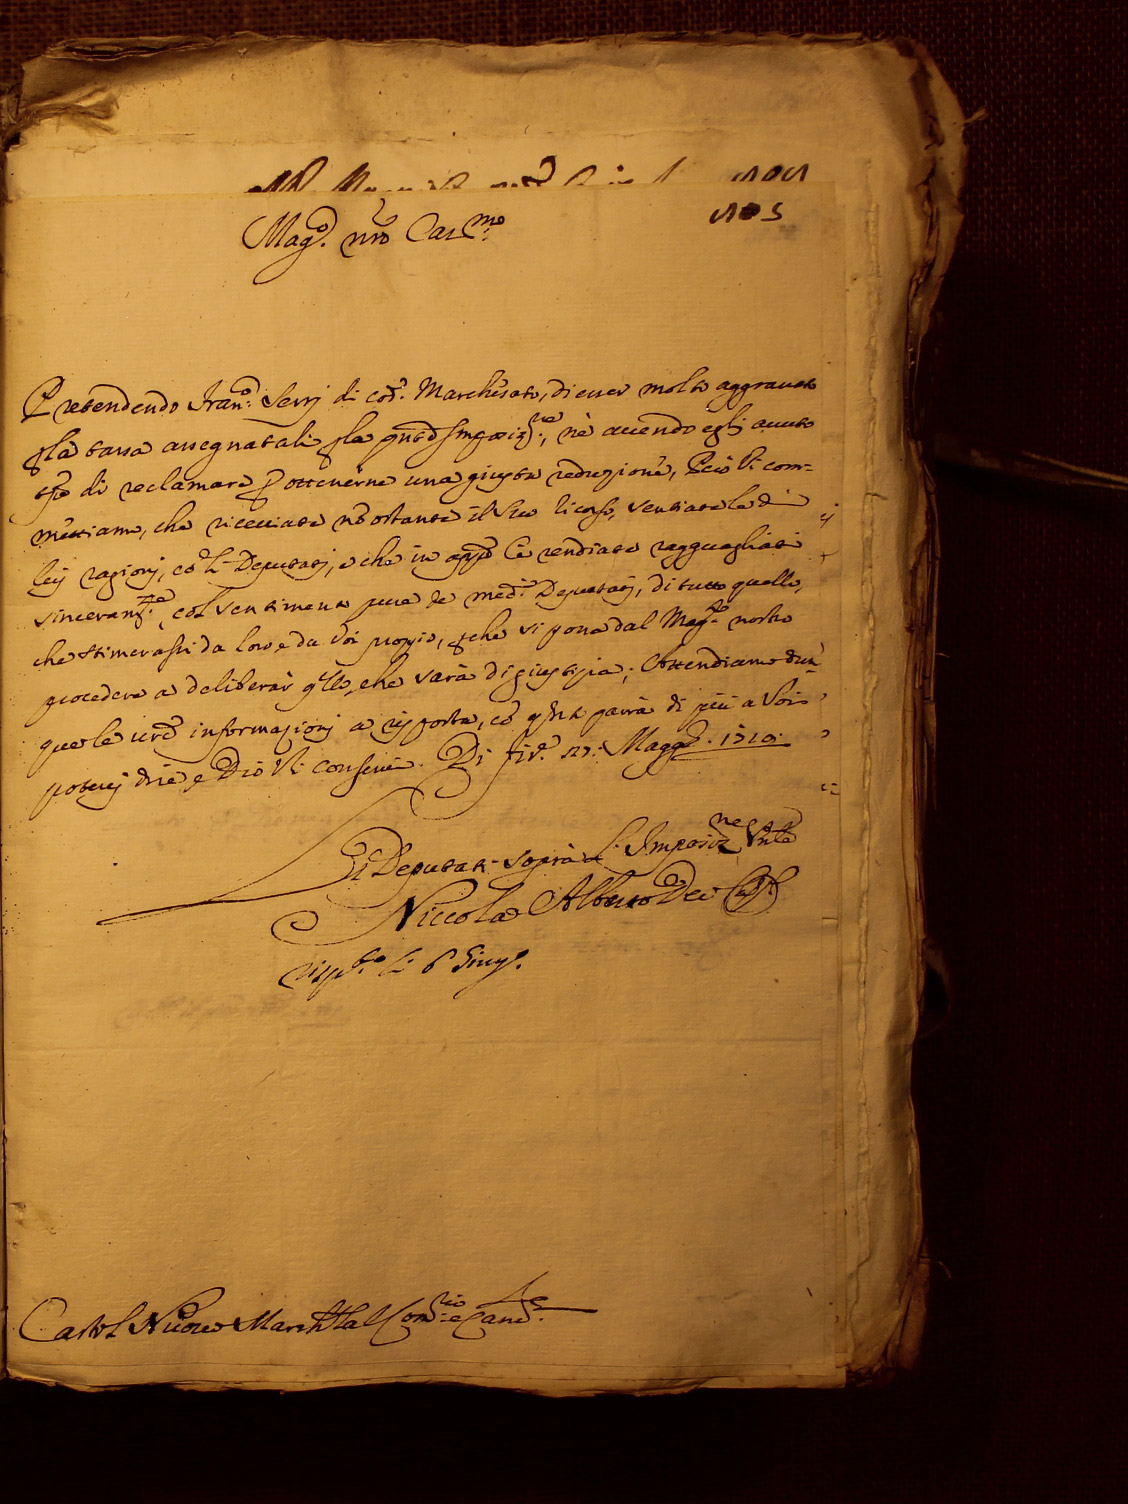 105
Mag.co nro Car.mo
Pretendendo Fran.o Serrj di cod.o Marchesato, di esser molto aggravato
p la tassa assegnatali p la pnte Imposiz.ne, nè avendo egli avuto
tpo di reclamare p ottenerne una giusta reduzione, Pciò Vi com-
mettiamo, che riceviate nō ostante il suo ricorso, sentiate le di
lej ragionj, cō li Deputatj, e che in appo Ce rendiate ragguagliati
sinceram.te, col sentimento pure de med.i Deputatj, di tutto quello,
che stimerassi da loro, e da Voi proprio, pche si possa dal Mag.to nostro
procedere a deliberar qllo, che sarà di giustizia; Attendiamo dun-
que le vre informazionj a risposta, cō qsta parrà di più a Voi
poterj dire, e Dio Vi conservi. Di Fir.e 27: Magg.o 1710.
Li Deputati sopra l'Imposiz.ne Vnle
Niccolò Alberto Dei
Risp.to li 6 Giug.o
Castel Nuovo Marchla Com.rio e Canc.re